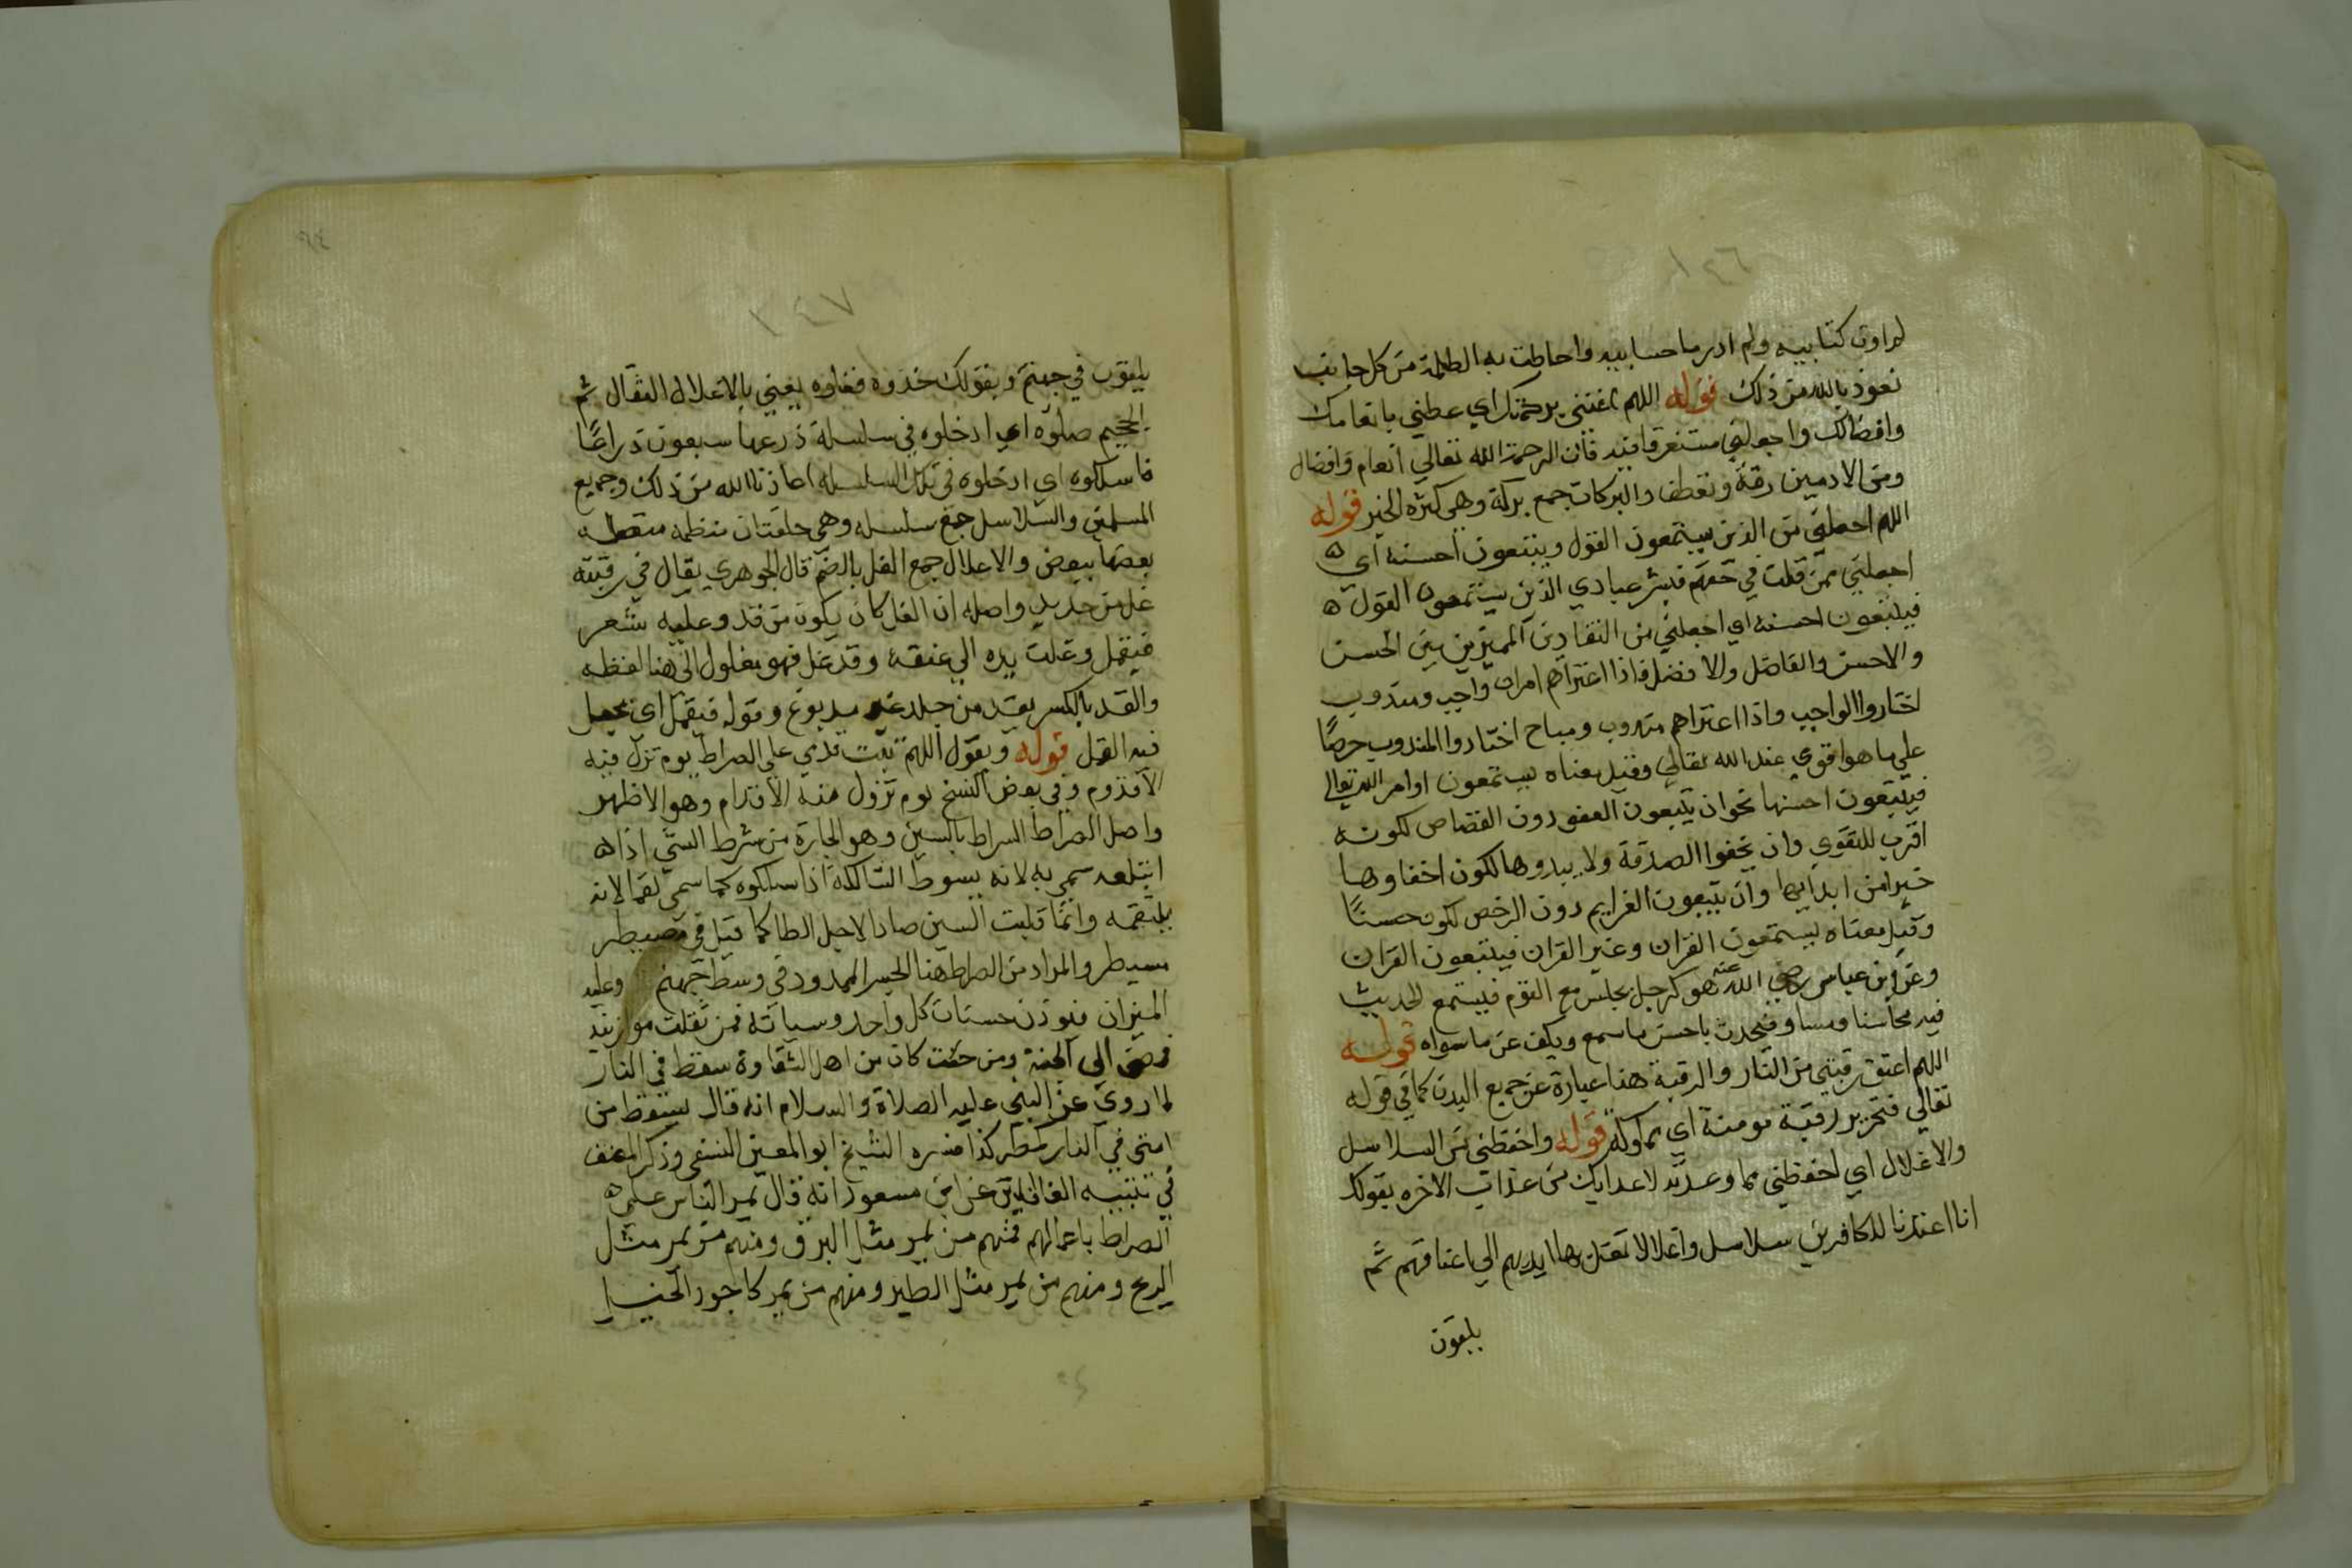 ١٤٦
لم اوت كتابيه ولم ادر ما حسابيه واحاطت به الظلمة من كل جانب
نعوذ بالله من ذلك قوله اللهم غثني برحمتك اي عطني بانعامك
وافضالك واجعلني مستغرقا فيه فان الرحمة الله تعالي انعام وافضال
ومن الادمين رقة وتعطف والبركات جمع بركة وهي كثره الخير قوله
اللهم اجعلني من الذين يستمعون القول ويتبعون احسنه اي ه
اجعلني ممن قلت في حقهم فبشر عبادي الذين يستمعون القول ه
فيتبعون احسنه اي اجعلني من النقادين المميزين بين الحسن
والاحسن والفاضل والافضل فاذا اعتراهم امران واجب ومندوب
اختاروا الواجب واذا اعتراهم مندوب ومباح اختاروا المندوب حرصًا
علي ما هو اقوي عند الله تعالي وقيل معناه يستمعون اوامر الله تعالي
فيتبعون احسنها نحو ان يتبعون العفو دون القصاص لكونه
اقرب للتقوي وان يخفوا الصدقة ولا يبدوها لكون اخفاوها
خيرا من ابدايها وان يتبعون الغرايم دون الرخص لكون حسنًا
وقيل معناه يستمعون القران وغير القران فيتبعون القران
وعن ابن عباس رضي الله عنه هو كرجل يجلس مع القوم فيستمع الحديث
فيه محاسنا ومساو فيحدث باحسن ما سمع ويكف عن ما سواه قوله
اللهم اعتق رقبتي من النار والرقبة هنا عبارة عن جميع البدن كما في قوله
تعالي فتحرير رقبة مومنة اي مملوكة قوله واحفظني من السلاسل
والاغلال اي احفظني مما وعدته لاعدايك من عذاب الاخره بقولك
انا اعتدنا للكافرين سلاسل واغلالا تغل بها ايديهم الي اعناقهم ثم
يلقون
١٤٧
يلقون في جهنم وبقولك خذوه فغلوه يعني بالاغلال الثقال ثم
الجحيم صلوه اي ادخلوه في سلسلة ذرعها سبعون ذراعًا
فاسلكوه اي ادخلوه في تلك السلسله اعاذنا الله من ذلك وجميع
المسلمين والسلاسل جمع سلسله وهي حلقتان منظمه
بعضها ببعض والاغلال جمع الغل بالضم قال الجوهري يقال في رقبته
غل من حديد واصله ان الغل كان يكون من قد وعليه شعر
فيقمل وغلت يده الي عنقه وقد غل فهو مغلول الي هنا لفظه
والقد بالكسر يقد من جلد غير مدبوغ وقوله فيقمل اي يحصل
فيه القمل قوله ويقول اللهم ثبت قدمي علي الصراط يوم تزل فيه
الاقدوم وفي بعض النسخ يوم تزول منه الاقدام وهو الاظهر
واصل الصراط السراط بالسين وهو الجارة من شرط الشي اذا ه
ابتلعه سمي به لانه يسوط السالكة اذا سلكوه كما سمي لقما لانه
يلتقمه وانما قلبت السين صادا لاجل الطا كما قيل في مصيطر
مسيطر والمراد من الصراط هنا الجسر الممدود في وسط جهنم وعليه
الميزان فيوزن حسنات كل واحد وسياته فمن ثقلت موازينه
فمضي الي الجنة ومن خفت كان من اهل الشقاوة سقط في النار
لما روي عن النبي عليه الصلاة والسلام انه قال يسقط من
امتي في النار كمطر كذا فسره الشيخ ابو المعين النسفي وذكر المصنف
في تنبيه الغافلين عن ابن مسعود انه قال يمر الناس علي ه
الصراط باعمالهم فمنهم من يمر مثل البرق ومنهم من يمر مثل
الريح ومنهم من يمر مثل الطير ومنهم من يمر كاجود الخيل